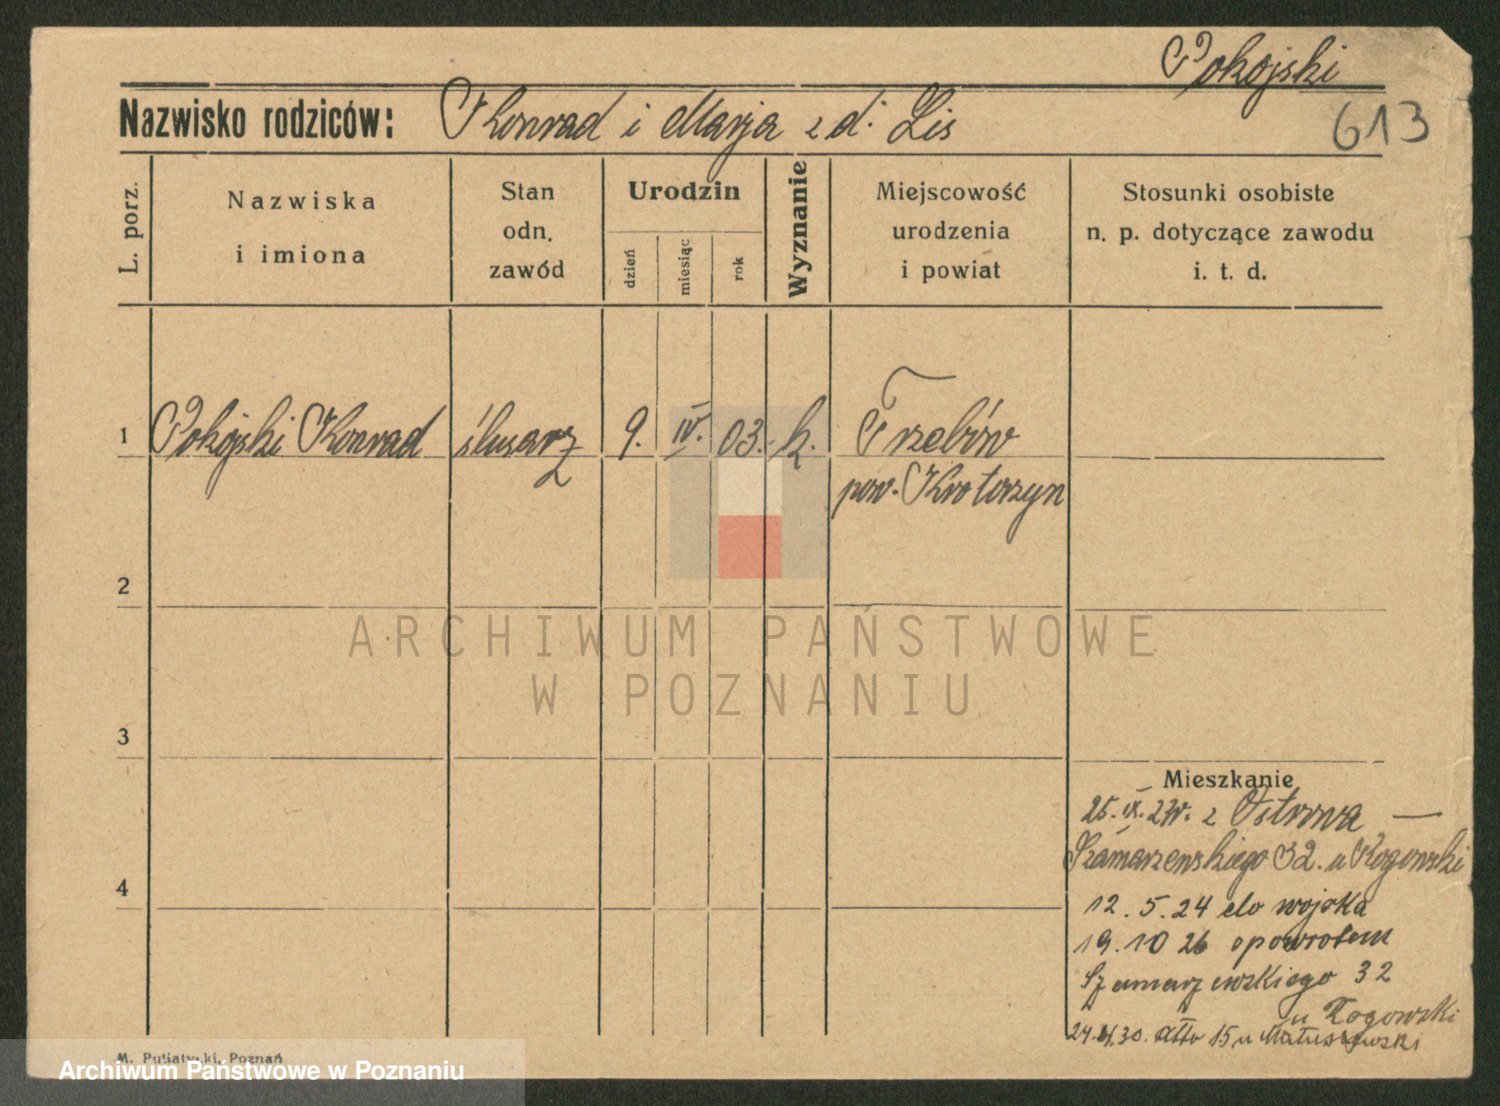 Pokojski
Nazwisko rodziców: Konrad i Marja z d. Lis
613
L. porz.
Nazwiska
i imiona
Stan
odn.
zawód
Urodzin
dzień
miesiąc
rok
Wyznanie
Miejscowość
urodzenia
i powiat
Stosunki osobiste
n. p. dotyczące zawodu
i. t. d.
1 Pokojski Konrad ślusarz 9. IV. 03. k. Trzebów
pow. Krotoszyn
2
ARCHIWUM PAŃSTWOWE
W POZNANIU
3
Mieszkanie
25. IX. z Ostrowa —
Szamarzewskiego 32. u Rogowski
4
12. 5. 24 do wojska
19. 10 26 spowrotem
Szamarzewskiego 32
u Rogowski
30. dtto 15 u Matuszewski
M. Putiatycki, Poznań
Archiwum Państwowe w Poznaniu